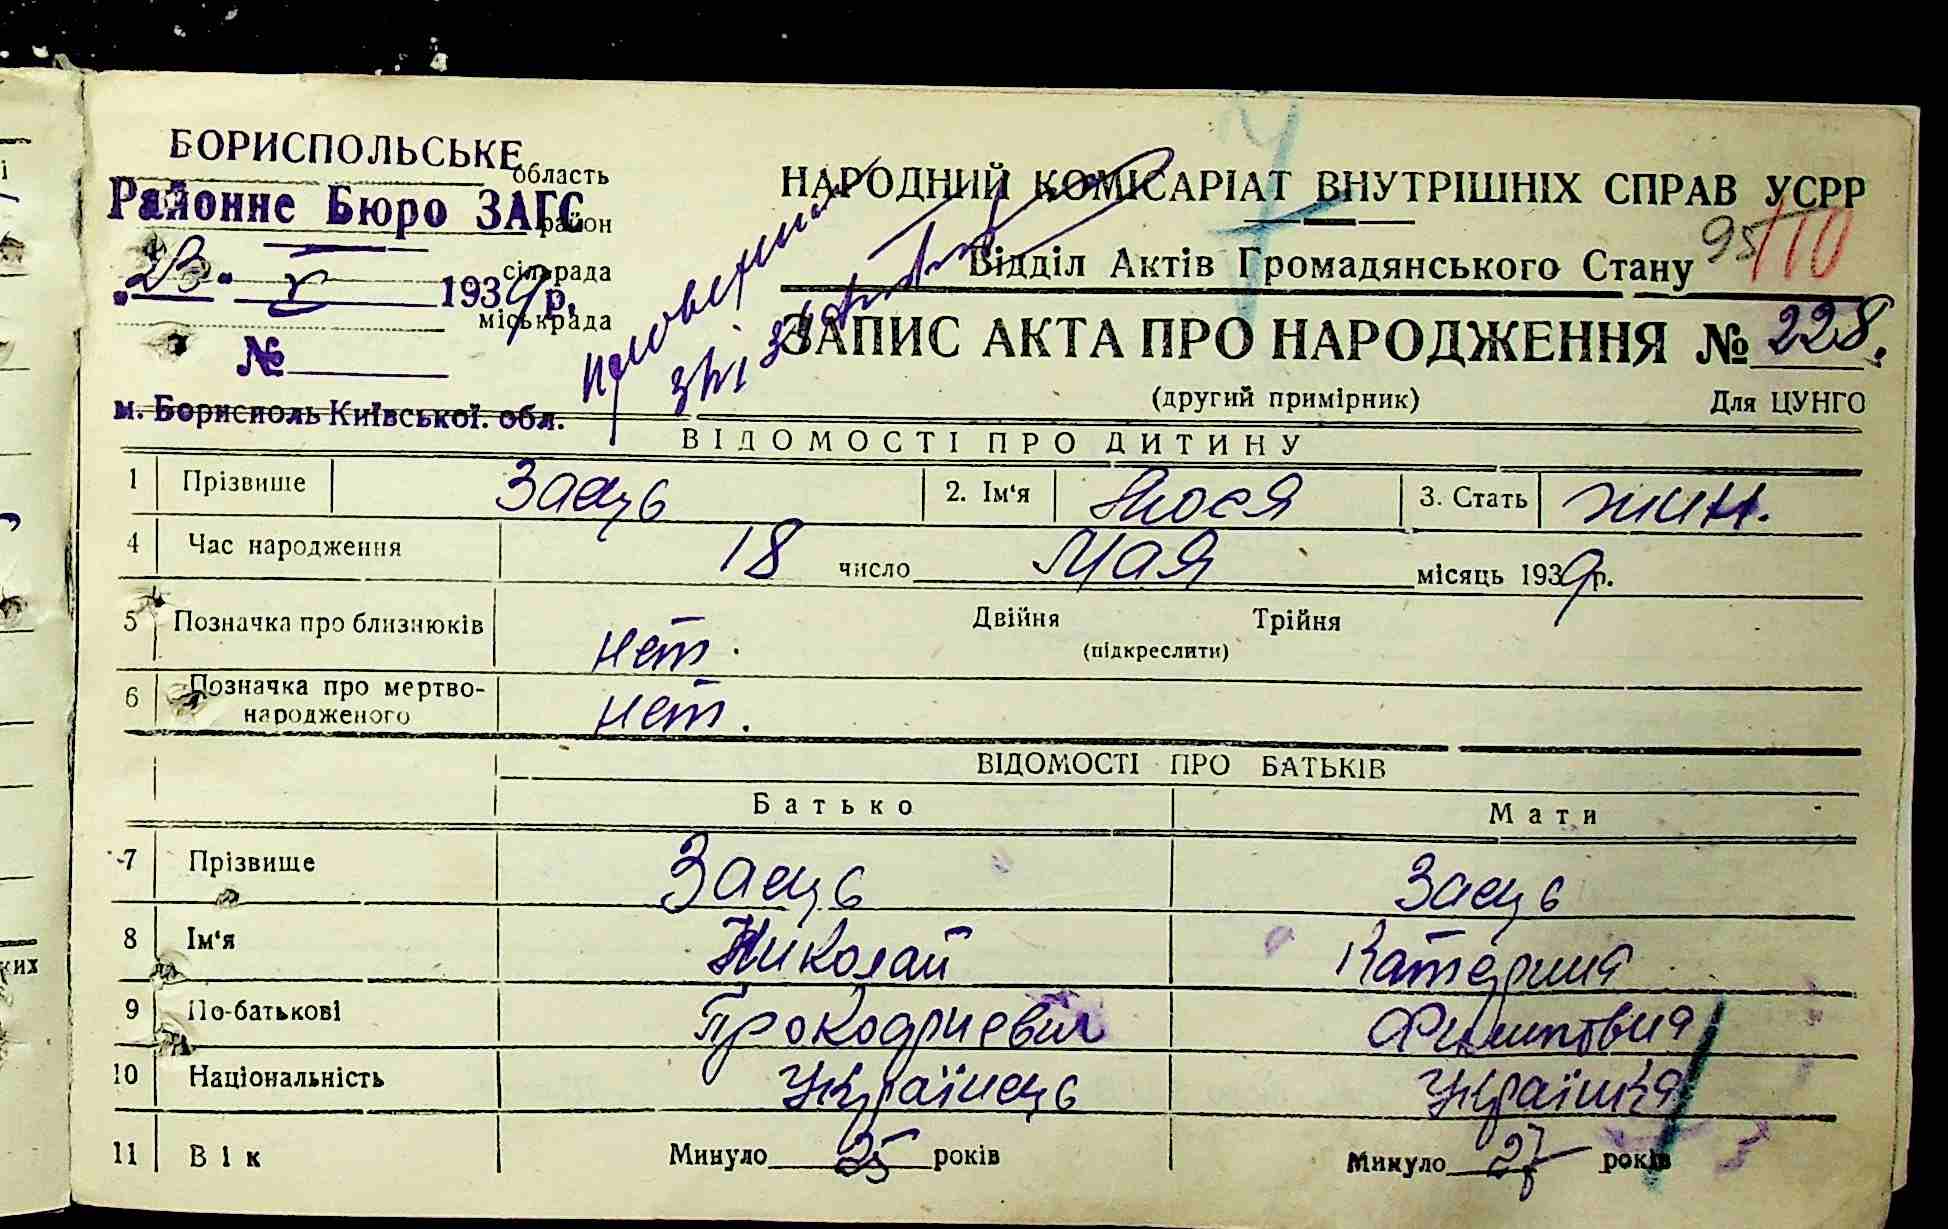 БОРИСПОЛЬСЬКЕ
область
Районне Бюро ЗАГС
район
сільрада
23. V 1939 р.
міськрада
№
м. Бориспіль Київської. обл.
НАРОДНИЙ КОМІСАРІАТ ВНУТРІШНІХ СПРАВ УСРР
95 110
Відділ Актів Громадянського Стану
ЗАПИС АКТА ПРО НАРОДЖЕННЯ № 228.
(другий примірник) Для ЦУНГО
ВІДОМОСТІ ПРО ДИТИНУ
1 Прізвище Заець 2. Ім'я Нюся 3. Стать жин.
4 Час народження 18 число Мая місяць 1939 р.
5 Позначка про близнюків нет. Двійня Трійня
(підкреслити)
6 Позначка про мертво-
народженого нет.
ВІДОМОСТІ ПРО БАТЬКІВ
Батько Мати
7 Прізвище Заець Заець
8 Ім'я Николай Катерина
9 По-батькові
10 Національність Українець Українка
11 Вік Минуло 25 років Минуло 27 років
ких